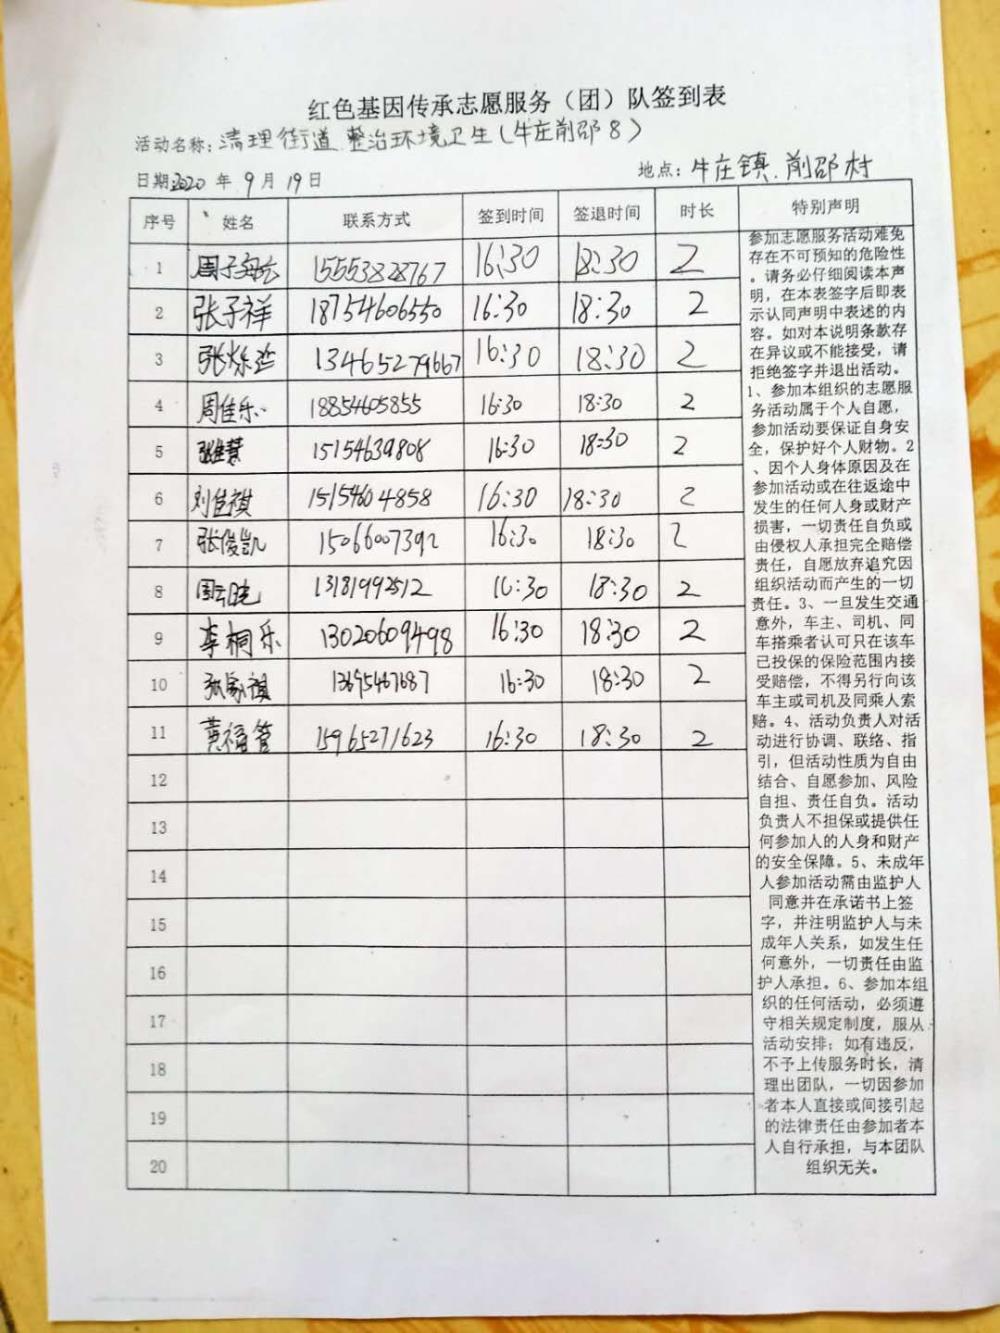 红色基因传承志愿服务（团）队签到表
活动名称：清理街道 整治环境卫生（牛庄前邵8）
日期2020 年 9 月 19 日 地点：牛庄镇.前邵村
序号 姓名 联系方式 签到时间 签退时间 时长 特别声明
1 周子 15553828767 16:30 18:30 2
2 张子祥 18754606550 16:30 18:30 2
3 张烁 13465279667 16:30 18:30 2
4 周佳乐 18854605855 16:30 18:30 2
5 张慧 15154639808 16:30 18:30 2
6 刘佳祺 15154604858 16:30 18:30 2
7 张俊凯 15066007392 16:30 18:30 2
8 周云晓 13181992512 16:30 18:30 2
9 李桐乐 13020609498 16:30 18:30 2
10 张家祖 13695467687 16:30 18:30 2
11 黄福管 15965271623 16:30 18:30 2
12
13
14
15
16
17
18
19
20
参加志愿服务活动难免
存在不可预知的危险性
。请务必仔细阅读本声
明，在本表签字后即表
示认同声明中表述的内
容。如对本说明条款存
在异议或不能接受，请
拒绝签字并退出活动。
1、参加本组织的志愿服
务活动属于个人自愿，
参加活动要保证自身安
全，保护好个人财物。2
、因个人身体原因及在
参加活动或在往返途中
发生的任何人身或财产
损害，一切责任自负或
由侵权人承担完全赔偿
责任，自愿放弃追究因
组织活动而产生的一切
责任。3、一旦发生交通
意外，车主、司机、同
车搭乘者认可只在该车
已投保的保险范围内接
受赔偿，不得另行向该
车主或司机及同乘人索
赔。4、活动负责人对活
动进行协调、联络、指
引，但活动性质为自由
结合、自愿参加、风险
自担、责任自负。活动
负责人不担保或提供任
何参加人的人身和财产
的安全保障。5、未成年
人参加活动需由监护人
同意并在承诺书上签
字，并注明监护人与未
成年人关系，如发生任
何意外，一切责任由监
护人承担。6、参加本组
织的任何活动，必须遵
守相关规定制度，服从
活动安排；如有违反，
不予上传服务时长，清
理出团队，一切因参加
者本人直接或间接引起
的法律责任由参加者本
人自行承担，与本团队
组织无关。